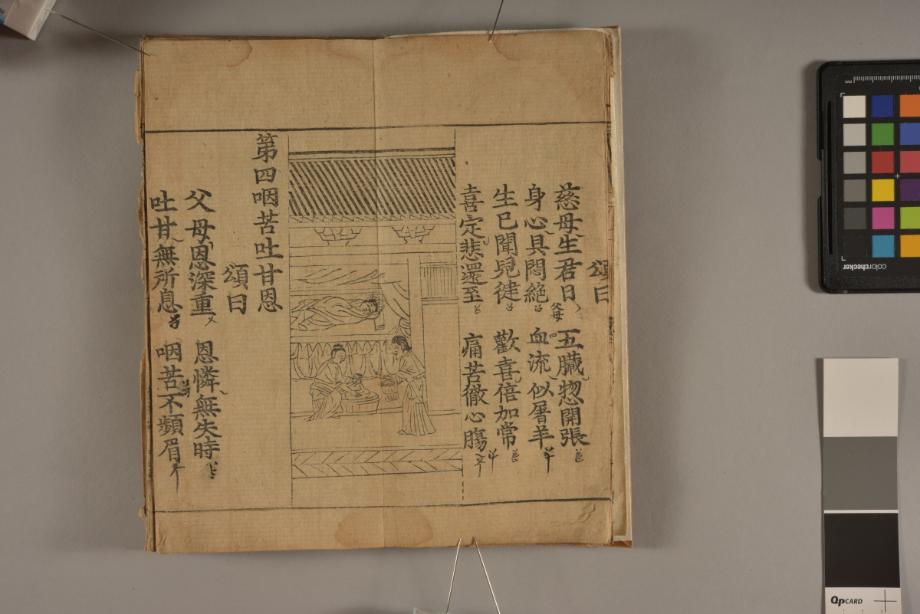 頌曰
慈母生君日 五臟惣開張
身心具悶絶 血流似屠羊
生已聞兒徒 歡喜倍加常
喜定悲還至 痛苦徹心膓
第四咽苦吐甘恩
頌曰
父母恩深重 恩憐無失時
吐甘無所息 咽苦不頻眉
colorchecker
QPCARD